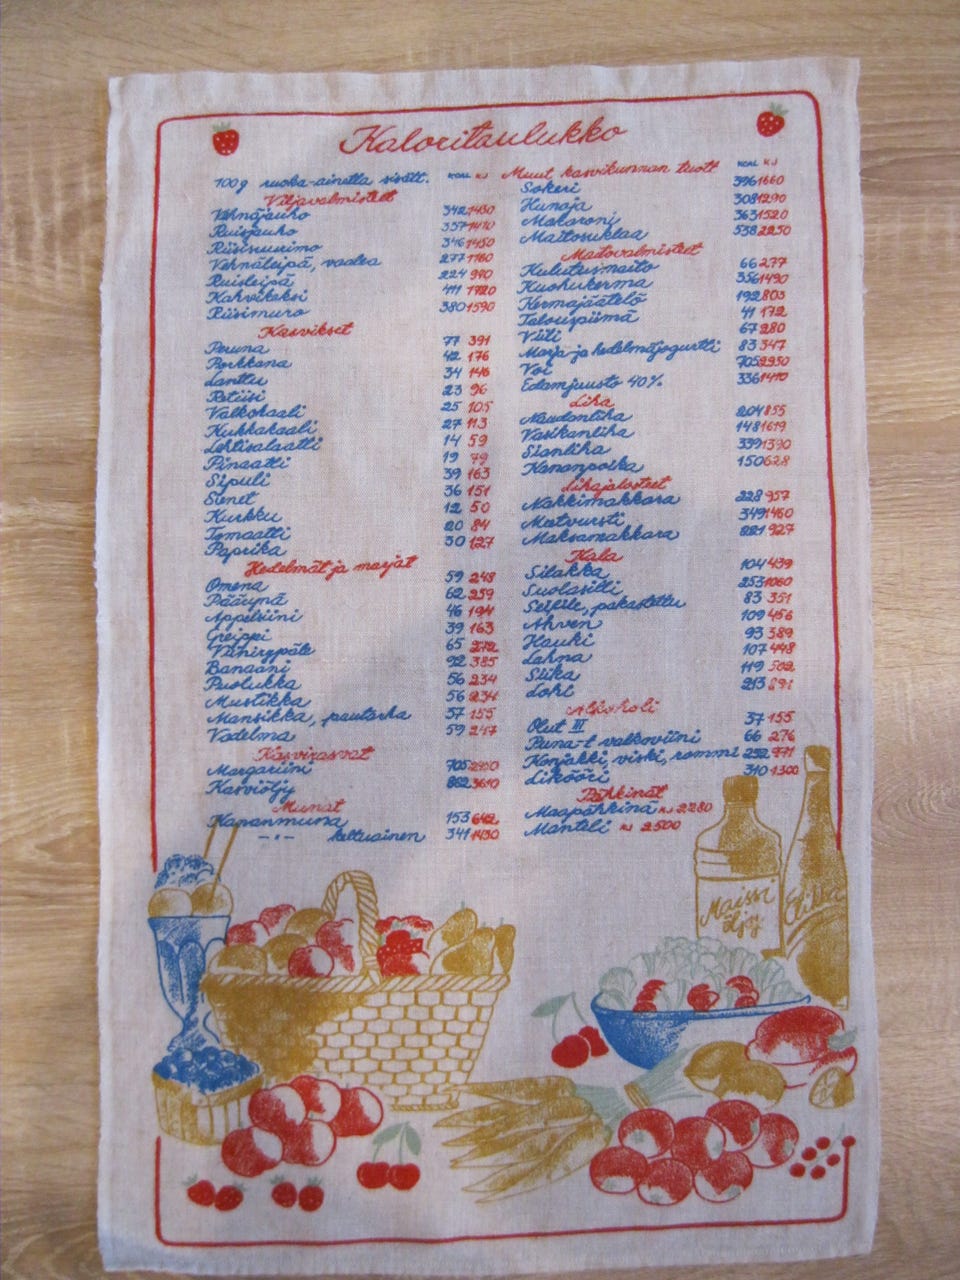 Kaloritaulukko
100g ruoka-ainetta sisält. KCAL KJ
Viljavalmisteet
Vehnäjauho 342 1430
Ruisjauho 337 1410
Riisisuurimo 346 1450
Vehnäleipä, vaalea 277 1160
Ruisleipä 224 940
Kahvikeksi 411 1720
Riisimuro 380 1590
Kasvikset
Peruna 77 391
Porkkana 42 176
Lanttu 34 146
Retiisi 23 96
Valkokaali 25 105
Kukkakaali 27 113
Lehtisalaatti 14 59
Pinaatti 19 79
Sipuli 39 163
Sienet 36 151
Kurkku 12 50
Tomaatti 20 84
Paprika 30 127
Hedelmät ja marjat
Omena 59 248
Päärynä 62 259
Appelsiini 46 194
Greippi 39 163
Viinirypäle 65 272
Banaani 92 385
Puolukka 56 234
Mustikka 56 234
Mansikka, puutarha 37 155
Vadelma 59 247
Kasvirasvat
Margariini 705 2950
Kasviöljy 862 3610
Munat
Kananmuna 153 642
–"– keltuainen 341 1430
Muut kasvikunnan tuott KCAL KJ
Sokeri 396 1660
Hunaja 308 1290
Makaroni 363 1520
Maitosuklaa 538 2250
Maitovalmisteet
Kulutusmaito 66 277
Kuohukerma 356 1490
Kermajäätelö 192 803
Talouspiimä 41 172
Viili 67 280
Marja-ja hedelmäjogurtti 83 347
Voi 705 2950
Edamjuusto 40% 336 1410
Liha
Naudanliha 204 855
Vasikanliha 148 1619
Sianliha 339 1390
Kananpoika 150 628
Lihajalosteet
Nakkimakkara 228 957
Metvursti 349 1460
Maksamakkara 221 927
Kala
Silakka 104 439
Suolasilli 253 1060
Seifile, pakastettu 83 351
Ahven 109 456
Hauki 93 389
Lahna 107 448
Siika 119 502
Lohi 213 891
Alkoholi
Olut III 37 155
Puna-t valkoviini 66 276
Konjakki, viski, rommi 232 971
Likööri 310 1300
Pähkinät
Maapähkinä KJ 2280
Manteli KJ 2500
Maissi
öljy